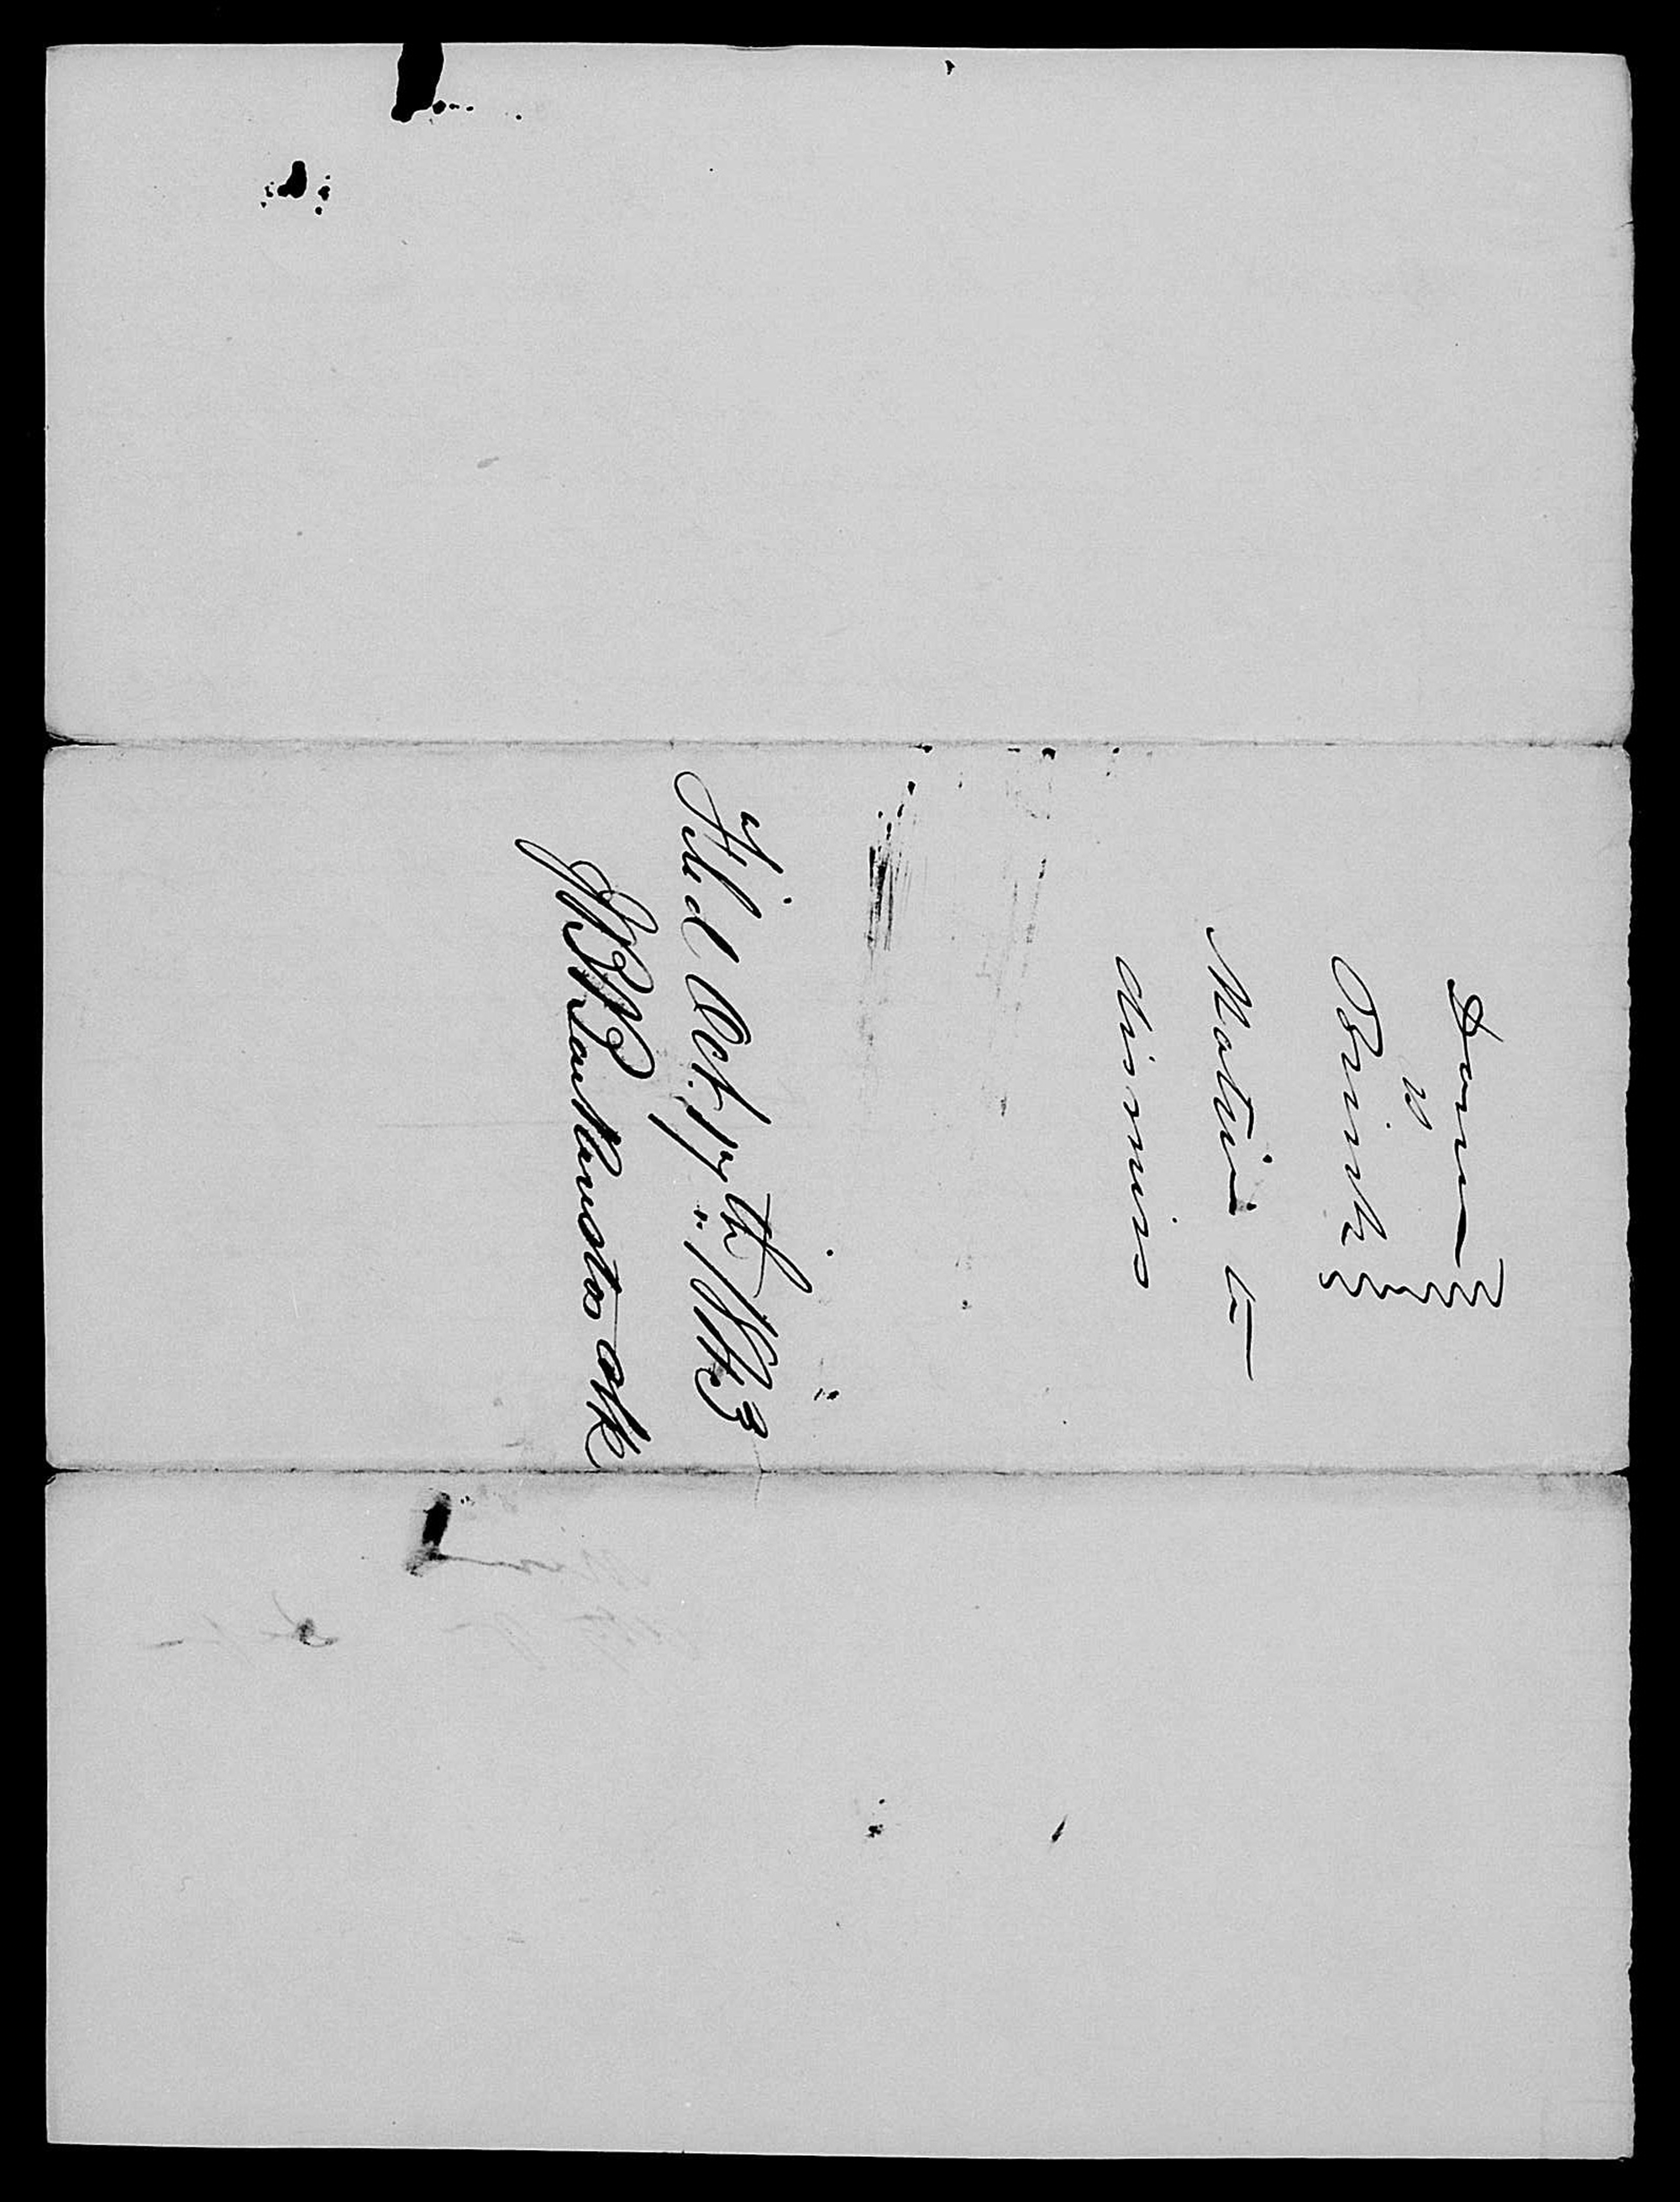 Dana
vs
Brink
Motion to
dismiss
Filed Oct. 17th 1843
J B Backenstos Clk